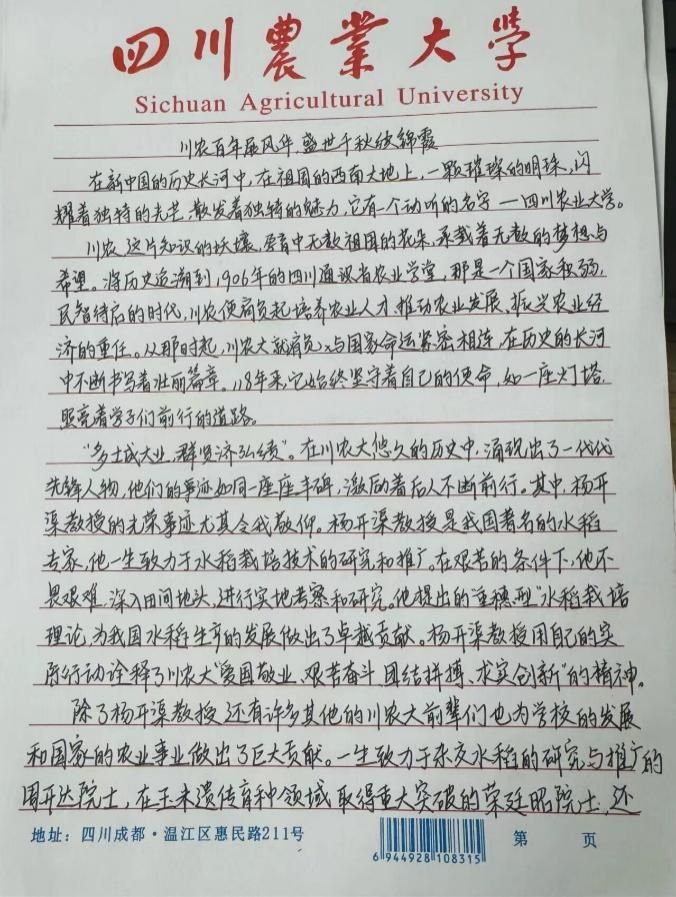 四川農業大学
Sichuan Agricultural University
川农百年展风华,盛世千秋绽锦霞
在新中国的历史长河中,在祖国的西南大地上,一颗璀璨的明珠,闪
耀着独特的光芒,散发着独特的魅力,它有一个动听的名字——四川农业大学。
川农,这片知识的沃壤,孕育中无数祖国的花朵,承载着无数的梦想与
希望。将历史追溯到1906年的四川通议省农业学堂,那是一个国家积弱,
民智待启的时代,川农便肩负起培养农业人才,推动农业发展,振兴农业经
济的重任。从那时起,川农大就肩负与国家命运紧密相连,在历史的长河
中不断书写着壮丽篇章。118年来,它始终坚守着自己的使命,如一座灯塔,
照亮着学子们前行的道路。
“多士成大业,群贤济弘绩”。在川农大悠久的历史中,涌现出了一代代
先锋人物,他们的事迹如同一座座丰碑,激励着后人不断前行。其中,杨开
渠教授的光荣事迹尤其令我敬仰。杨开渠教授是我国著名的水稻
专家,他一生致力于水稻栽培技术的研究和推广。在艰苦的条件下,他不
畏艰难,深入田间地头,进行实地考察和研究。他提出的“重穗型”水稻栽培
理论,为我国水稻生产的发展做出了卓越贡献。杨开渠教授用自己的实
际行动诠释了川农大“爱国敬业、艰苦奋斗、团结拼搏、求实创新”的精神。
除了杨开渠教授,还有许多其他的川农大前辈们也为学校的发展
和国家的农业事业做出了巨大贡献。一生致力于杂交水稻的研究与推广的
周开达院士,在玉米遗传育种领域取得重大突破的荣廷昭院士,还
地址:四川成都·温江区惠民路211号
6 944928 108315
第 页